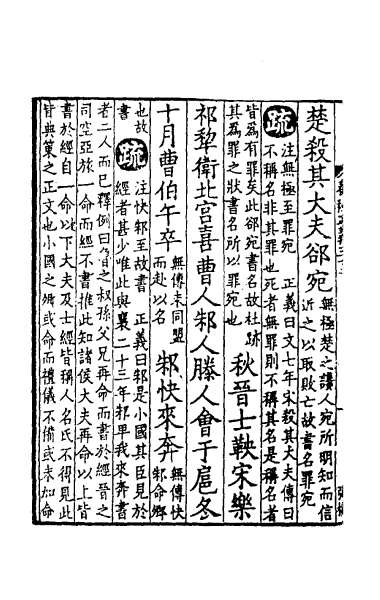 楚殺其大夫郤宛無極楚之讒人宛所明知而信
近之以取敗亡故書名罪宛
疏注無極至罪宛 正義曰文七年宋殺其大夫傳曰
不稱名非其罪也死者無罪則不稱其名是稱名者
皆為有罪矣此郤宛書名故杜跡
其為罪之狀書名所以罪宛也
秋晉士鞅宋樂
祁犂衛北宮喜曹人邾人滕人會于扈冬
十月曹伯午卒無傳未同盟
而赴以名
邾快來奔無傳快
邾命卿
也故
書
疏注快邾至故書 正義曰邾是小國其臣見於
經者甚少唯此與襄二十三年邾畀我來奔書
者二人而已釋例曰魯之叔孫父兄再命而書於經晉之
司空亞旅一命而經不書推此知諸侯大夫再命以上皆
書於經自一命以下大夫及士經皆稱人名氏不得見此
皆典策之正文也小國之卿或命而禮儀不備或未加命